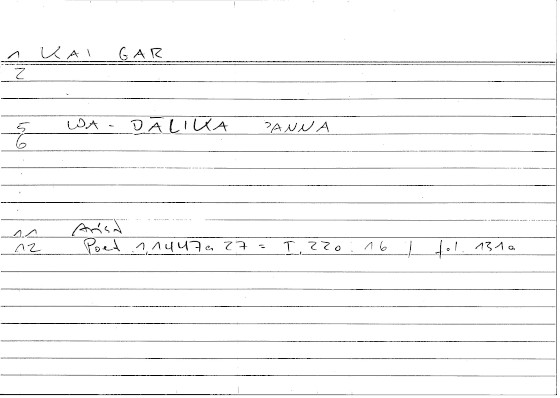 1 KAI GAR
2
5 WA-DĀLIKA ʾANNA
6
11 Arist
12 Poet 1,1447a 27 = T. 220. 16 / fol. 131a